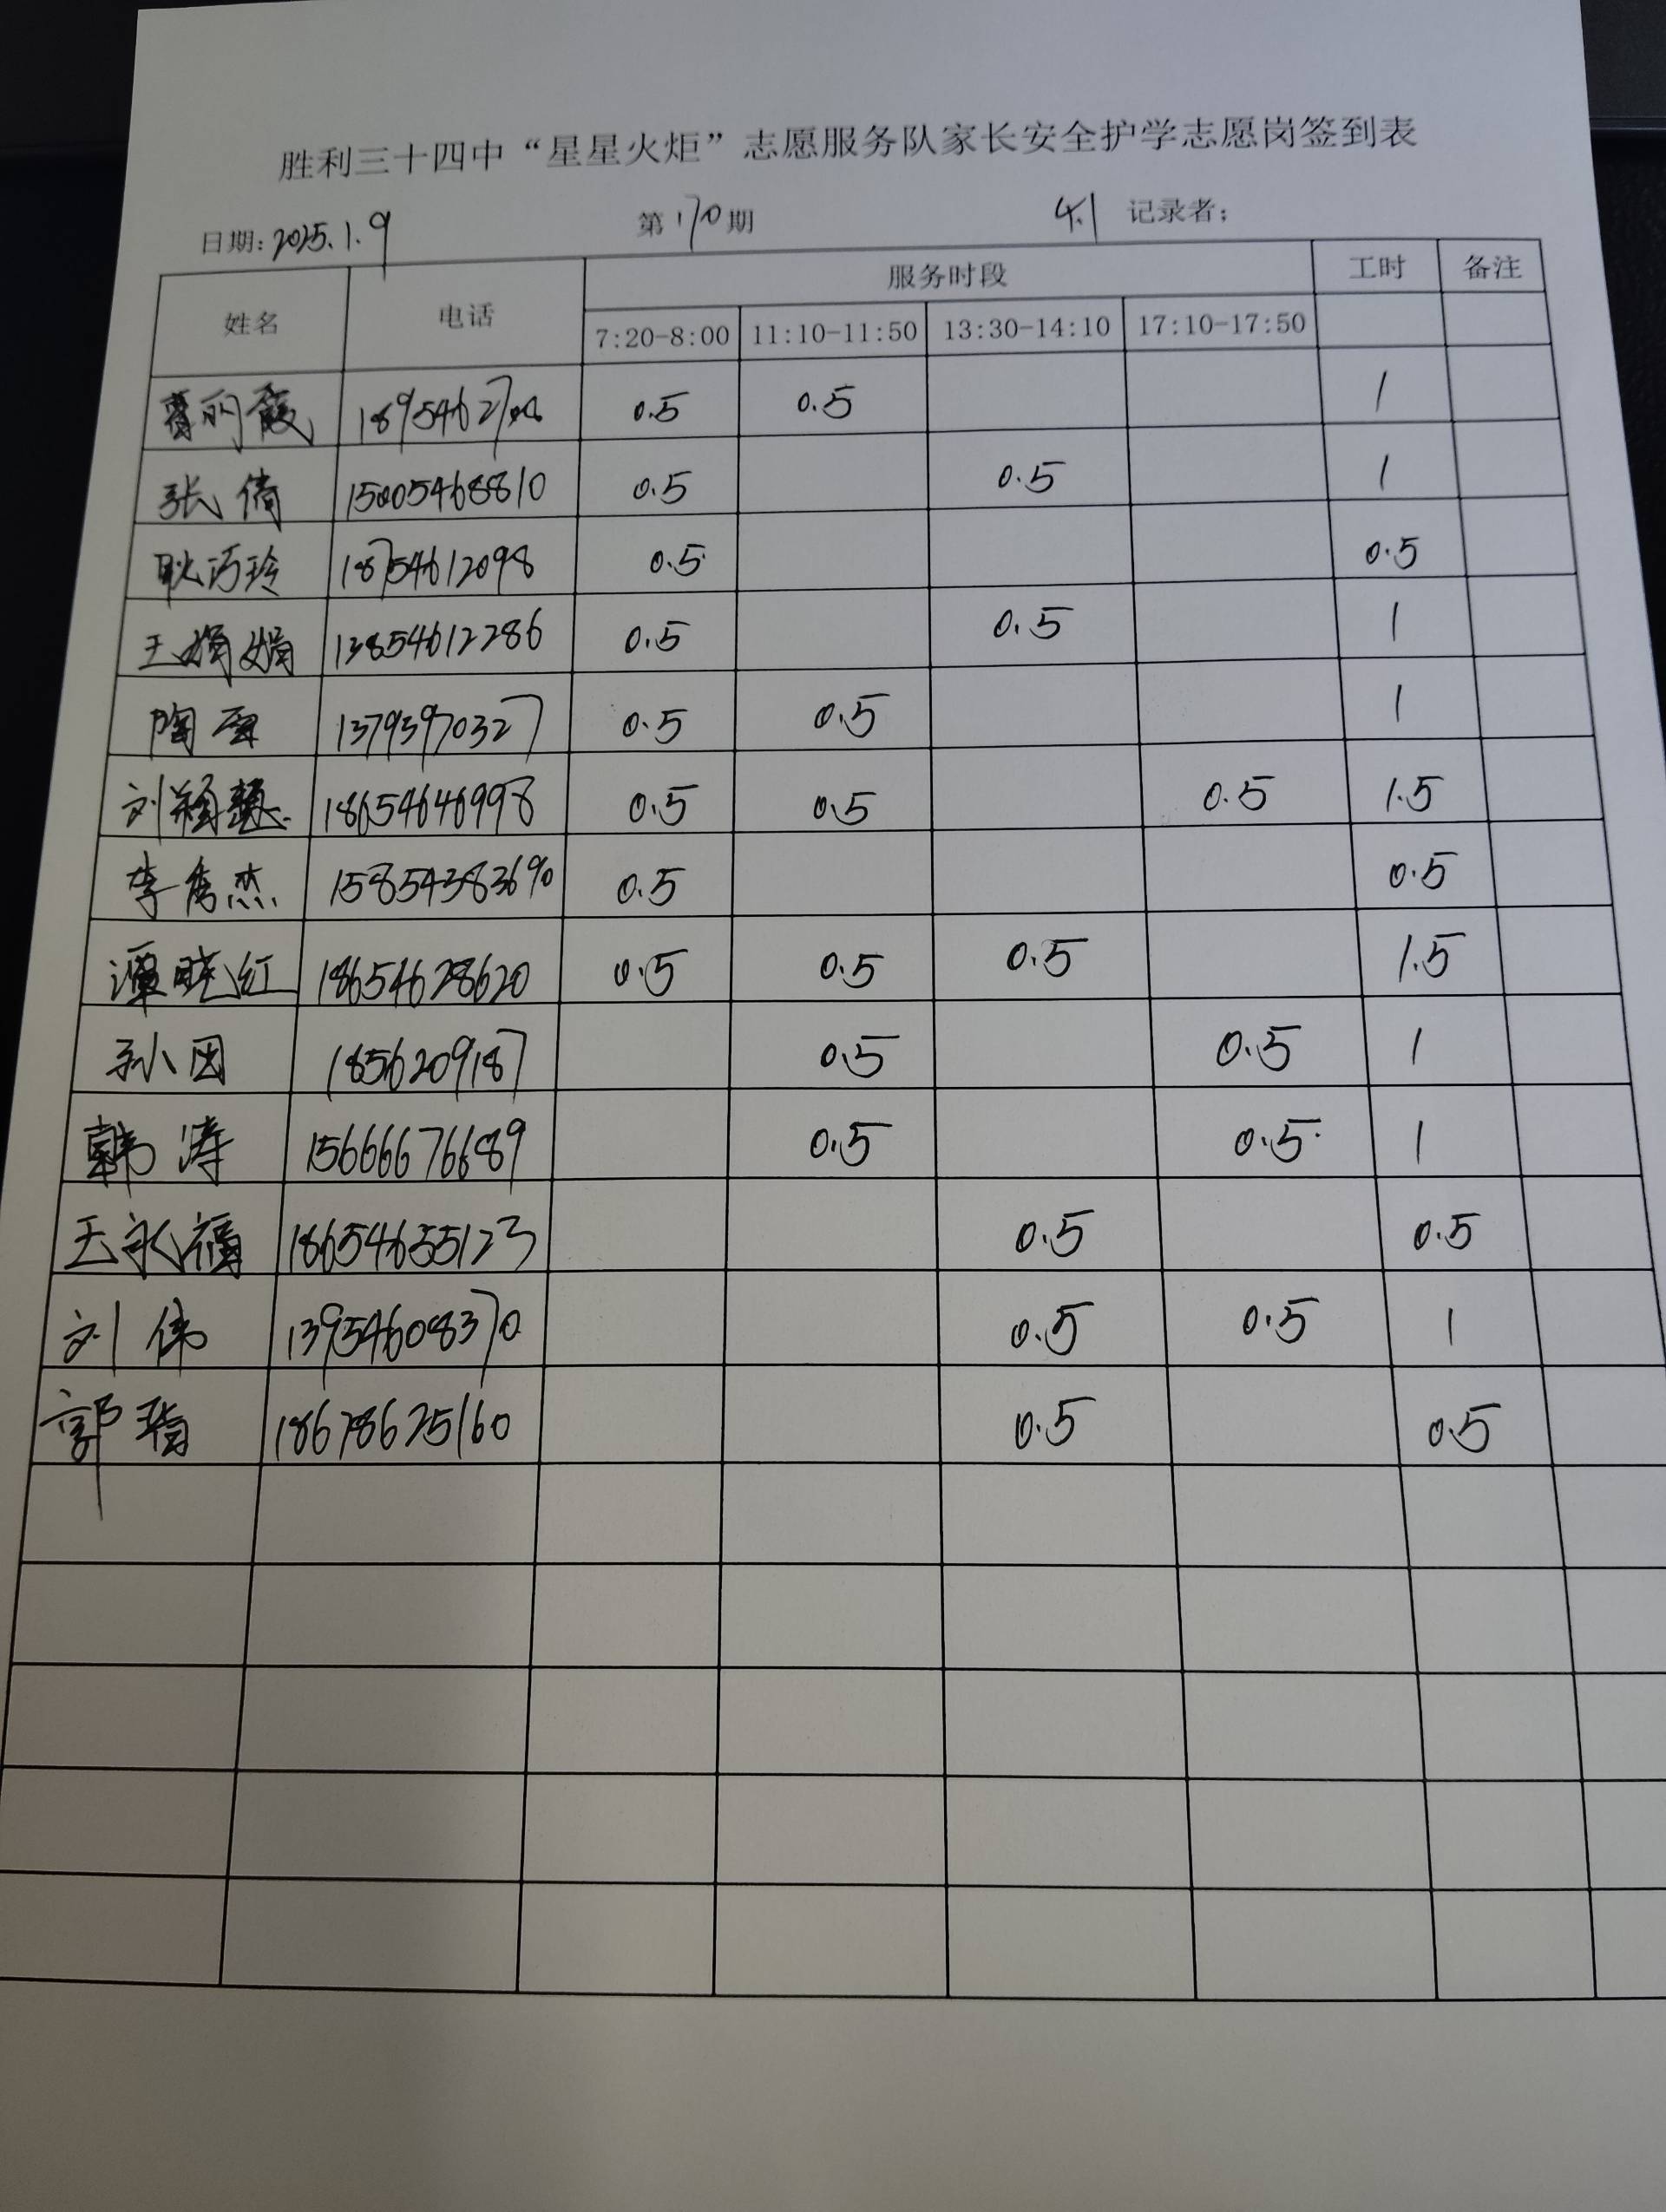 胜利三十四中“星星火炬”志愿服务队家长安全护学志愿岗签到表
日期: 2025.1.9 第170期 4.1 记录者:
姓名 电话 服务时段 工时 备注
7:20-8:00 11:10-11:50 13:30-14:10 17:10-17:50
丽霞 0.5 0.5 1
张倩 15005468810 0.5 0.5 1
耿 玲 18754612098 0.5 0.5
王娟娟 13854612286 0.5 0.5 1
陶雪 13793970327 0.5 0.5 1
刘 慧 18654646998 0.5 0.5 0.5 1.5
李 杰 15854383690 0.5 0.5
谭晓红 18654628620 0.5 0.5 0.5 1.5
孙 1856209187 0.5 0.5 1
韩涛 15666676689 0.5 0.5 1
王永福 18654655123 0.5 0.5
刘伟 13954608370 0.5 0.5 1
郭 18678625160 0.5 0.5